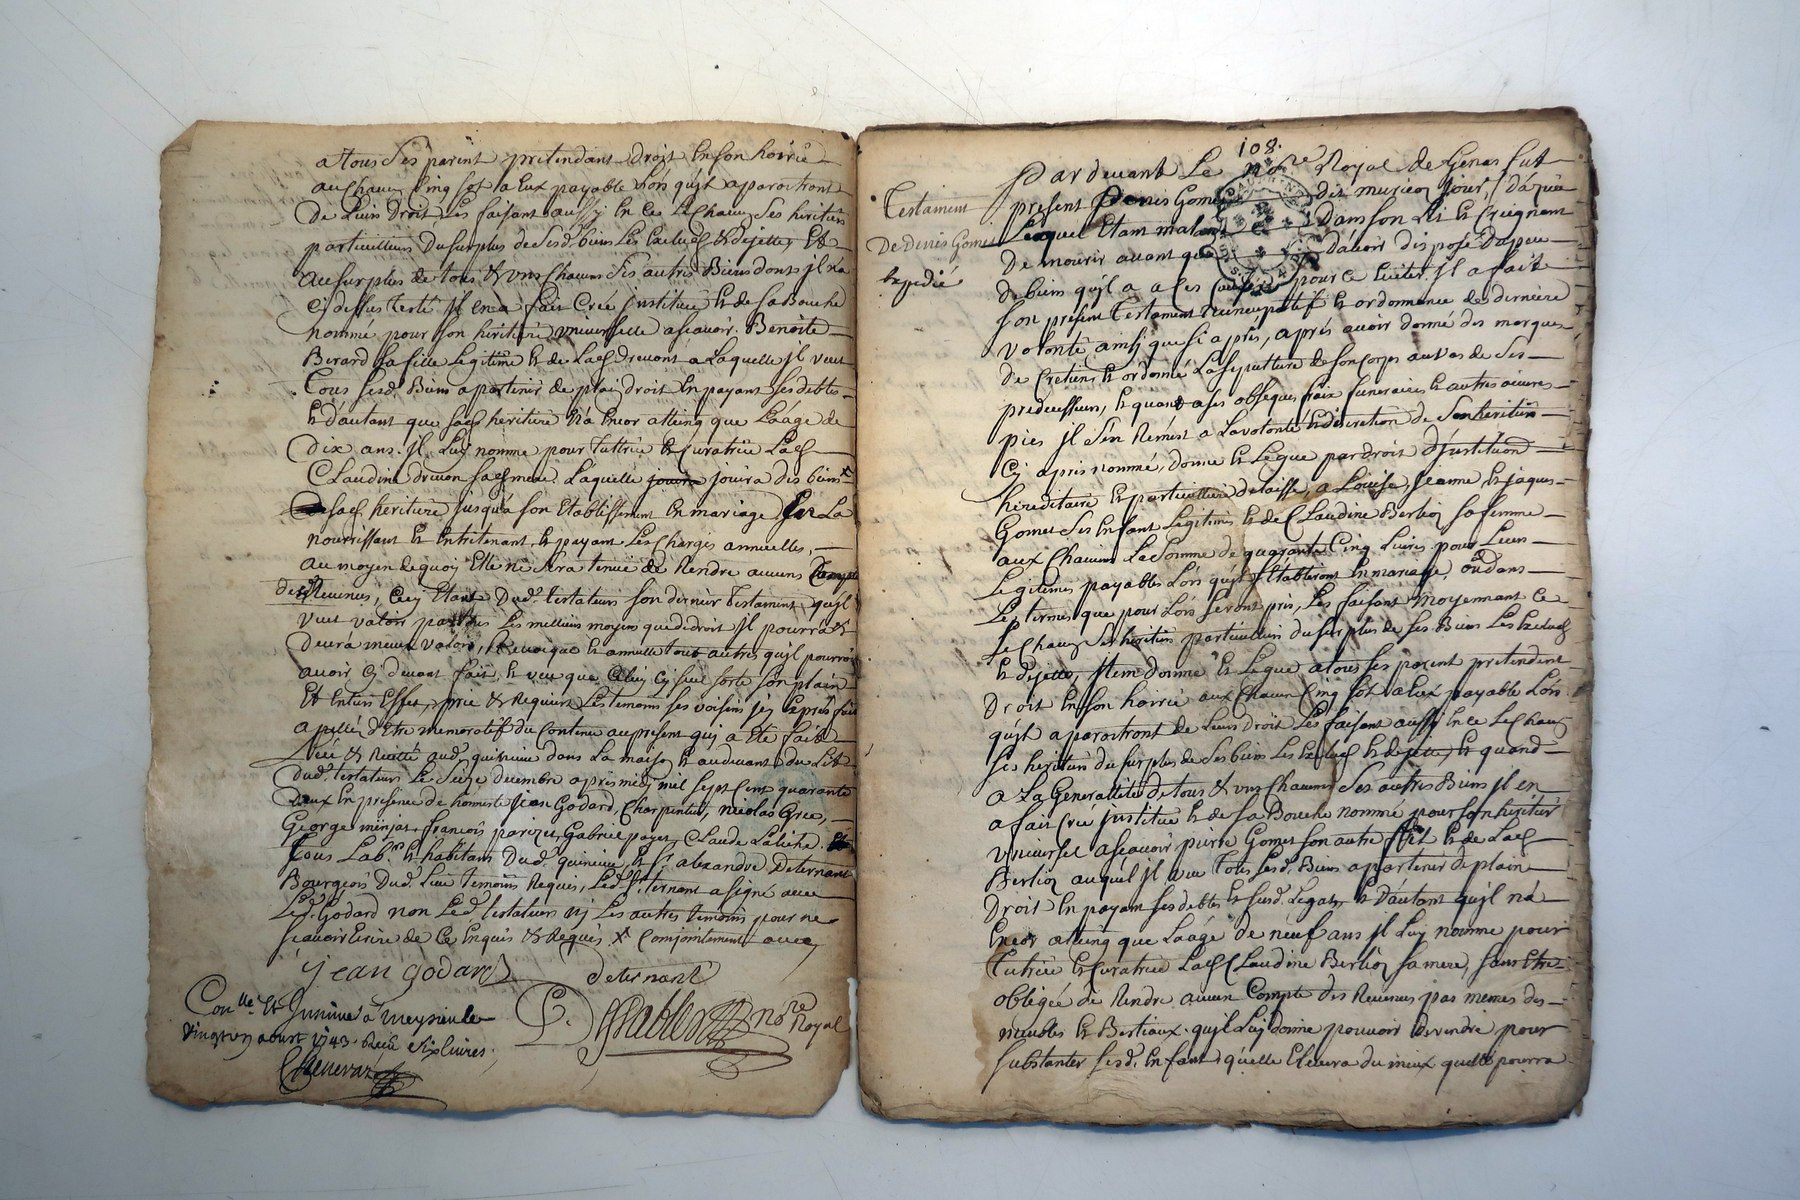 a tous ses parent pretendant droit en son hoirie
au chaun cinq sol a eux payable lors qu'jl aparoitront
de leurs droit les faisant aussy en ce le chaun ses heritiers
particulliers du surplus de sesd. biens les exclud & dejettes Et
au surplus de tous & uns chacuns ses autres Biens donts jl n'a
cy dessus testé jl en a fait Creé jnstitué et de sa Bouche
nommé pour son heritiere universelle ascavoir Benoite
Berard sa fille Legitime et de lad. drevont a Laquelle jl veut
Tous sesd. Biens apartenir de plain droit En payant ses debtes
et D'autant que sad. heritiere n'a Encor atteing que L'aage de
Dix ans jl Luy nomme pour Tuttrice & Curatrice Lad.
Claudine drevon sad. mere Laquelle jouira des biens x
de sad. heritiere jusqu'a son Etablissement En mariage En La
nourrissant et Entretenant et payant Les charges annuelles,
au moyen de quoy Elle ne sera tenue de Rendre aucuns Compte
des Revenus, Cecy Etant Dud. testateur son dernier testament qu'jl
veut valoir par tous Les meilleurs moyens que de droit jl pourra &
devra mieux valoir, Revoque et annulle tous autres qu'jl pourroit
avoir cy devant fait, et veut que Celuy cy seul sorte son plain
Et Entier Effet, prie & Requiert Les temoins ses voisins jcy Exprés fait
apellés d'Etre memoratifs du Contenu au present quj a Eté fait
Leu & Recitté aud. quincieu dans La maison et audevant du Lit
Dud. testateur Le Seize decembre aprés midy mil sept Cent quarante
deux En presence de honneste jean Godard, Charpentier, nicolas Gree,
George minjat, francois parizet, Gabriel payet, Claude Laliche
tous Lab.rs et habitans Dud. quincieu et S.r alexandre Deternant
Bourgeois Dud. Lieu temoins Requis, Led. S.r ternant a signé avec
Led. Godard non Led. testateur nj Les autres temoins pour ne
scavoir Ecrire de Ce Enquis & Requis x Conjointement avec
jean godard deternant
C. No.re Royal
Con.lle Et Jnsinué a meysieule
vingt un aoust 1743. Receu six livres.
Chenevaz
108.
Testament
De Denis Gomet
Expedié
Par devant Le No.re Royal de Genas fut
present Denis Gomet
Lequel Etant malade dans son Lit et Creignant
De mourir avant que d'avoir disposé Du peu
de bien qu'jl a a Ces Causes pour ce Eviter jl a fait
son present Testament nuncupatif et ordonnance de derniere
volonté ainsj que sj aprés, aprés avoir donné des marques
de Cretien, et ordonné La sepulture de son Corps au vas de Ses
predecesseurs, et quant a ses obseques fraix funeraires et autres oeuvres
pies jl s'en Remest a La volonté et discretion de Son heritier
Cy aprés nommé, donne et Legue par droit D'jnstitution
hereditaire et particulliere delaisse, a Louise, jeanne, et jaques
Gomet ses Enfant Legitimes et de Claudine Berlioz sa femme
aux chacuns La Somme de quarante Cinq Livres pour Leur
Legitimes payables Lors qu'jl S'Etabliront En mariage, ou dans
Les termes que pour Lors seront pris, Les faisant moyennant Ce
Le chaun ses heritiers particulliers du surplus de ses Biens Les Exclud
et dejette, jtem donne et Legue a tous ses parent pretendent
Droit En son hoirie aux Chacun Cinq sol a Eux payable Lors
qu'jl aparoitront de Leurs Droit Les faisant aussy En ce Le chaun
ses heritiers du surplus de ses biens Les Exclud et dejette, et quand
a La Generallité de tous & uns Chacuns Ses autres Biens jl en
a fait Creé jnstitué et de sa Bouche nommé pour son heritier
universel ascavoir pierre Gomet son autre fils et de Lad.
Berlioz auquel jl veut Tous sesd. Biens apartenir de plain
Droit En payant ses debtes et susd. Legats, et D'autant qu'jl n'a
Encor atteing que L'aage de neuf ans jl Luy nomme pour
Tutrice et Curatrice Lad. Claudine Berlioz sa mere, sans Etre
obligée de Rendre aucun Compte des Revenus pas memes des
meubles et Bestiaux qu'jl Luy donne pouvoir de vendre pour
substanter sesd. Enfant qu'elle Elevera du mieux quelle pourra